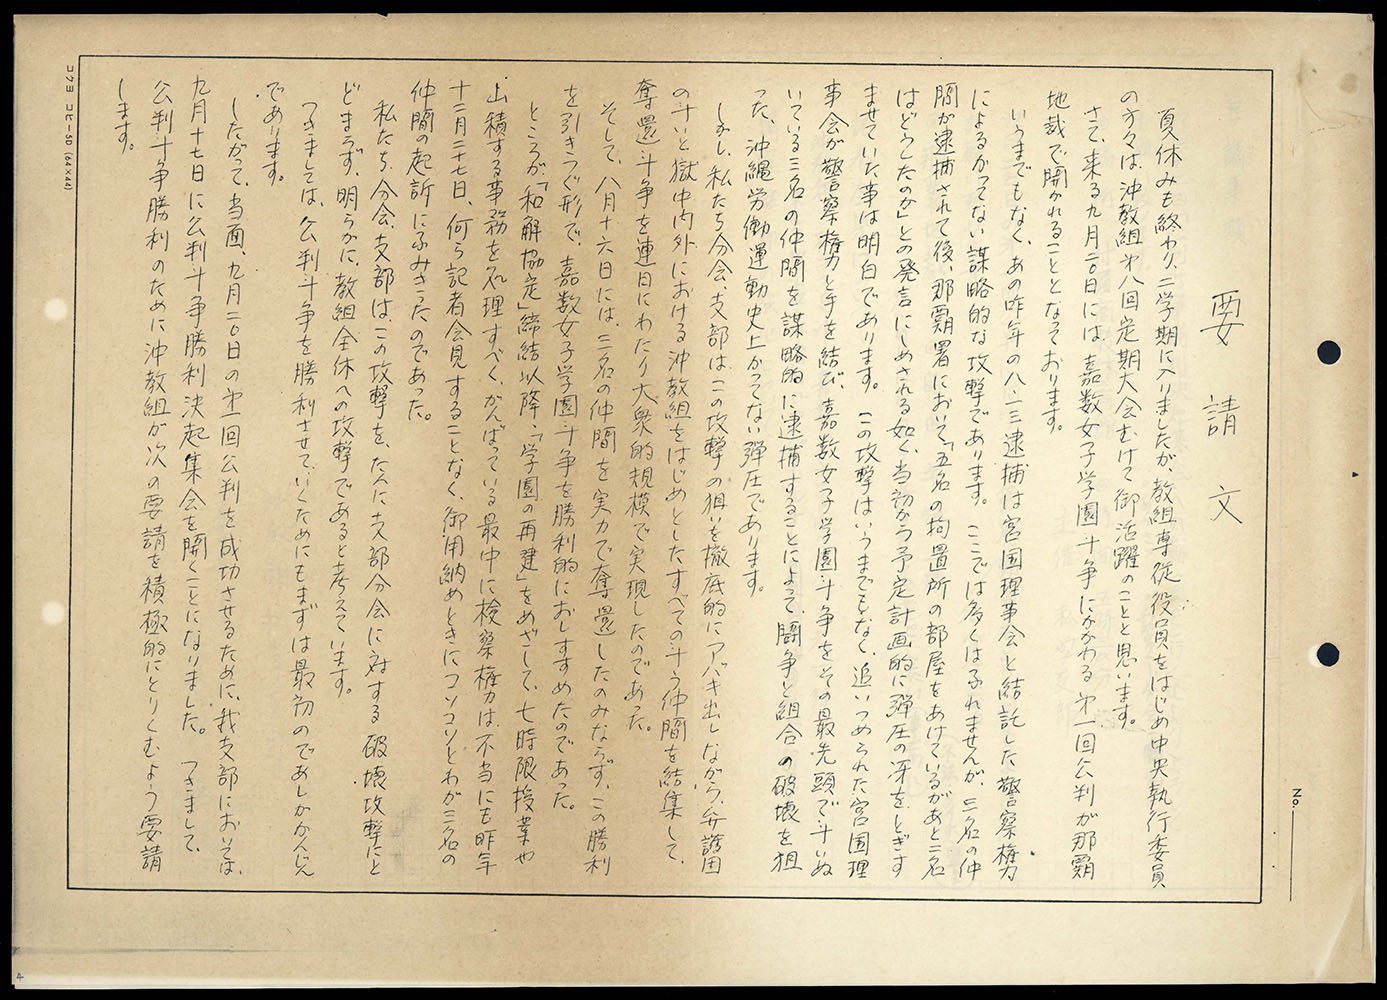 要請文
夏休みも終わり、二学期に入りましたが、教組専従役員をはじめ中央執行委員
の方々は、沖教組第八回定期大会むけて御活躍のことと思います。
さて、来る九月二〇日には、嘉数女子学園斗争にかかわる第一回公判が那覇
地裁で開かれることとなっております。
いうまでもなく、あの昨年の八・一三逮捕は宮国理事会と結託した警察権力
によるかつてない謀略的な攻撃であります。ここでは多くはふれませんが、三名の仲
間が逮捕されて後、那覇署において「五名の拘置所の部屋をあけているがあと二名
はどうしたのか」との発言にしめされる如く、当初から予定計画的に弾圧の牙をとぎす
ませていた事は明白であります。この攻撃はいうまでもなく、追いつめられた宮国理
事会が警察権力と手を結び、嘉数女子学園斗争をその最先頭で斗いぬ
いている三名の仲間を謀略的に逮捕することによって、闘争と組合の破壊を狙
った、沖縄労働運動史上かつてない弾圧であります。
しかし、私たち分会、支部は、この攻撃の狙いを徹底的にアバキ出しながら、弁護団
の斗いと獄中内外における沖教組をはじめとしたすべての斗う仲間を結集して、
奪還斗争を連日にわたり大衆的規模で実現したのであった。
そして、八月十六日には、三名の仲間を実力で奪還したのみならず、この勝利
を引きつぐ形で、嘉数女子学園斗争を勝利的におしすすめたのであった。
ところが、「和解協定」締結以降、「学園の再建」をめざして、七時限授業や
山積する事務を処理すべく、がんばっている最中に検察権力は、不当にも昨年
十二月二十七日、何ら記者会見することなく、御用納めときにコソコソとわが三名の
仲間の起訴にふみきったのであった。
私たち分会、支部は、この攻撃を、たんに支部分会に対する破壊攻撃にと
どまらず、明らかに、教組全体への攻撃であると考えています。
つきましては、公判斗争を勝利させていくためにもまずは最初のであしがかんじん
であります。
したがって、当面、九月二〇日の第一回公判を成功させるために、我支部においては、
九月十七日に公判斗争勝利決起集会を開くことになりました。つきまして、
公判斗争勝利のために沖教組が次の要請を積極的にとりくむよう要請
します。
No.
コクヨ コヒー5D (64×44)
4